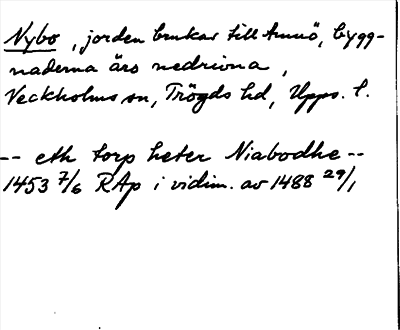 Nybo, jorden brukar till Amnö, bygg-
naderna äro nedrivna,
Veckholms sn, Trögds hd, Upps. l.
-- eth torp heter Niabodhe --
1453 7/6 RAp i vidim. av 1488 29/1